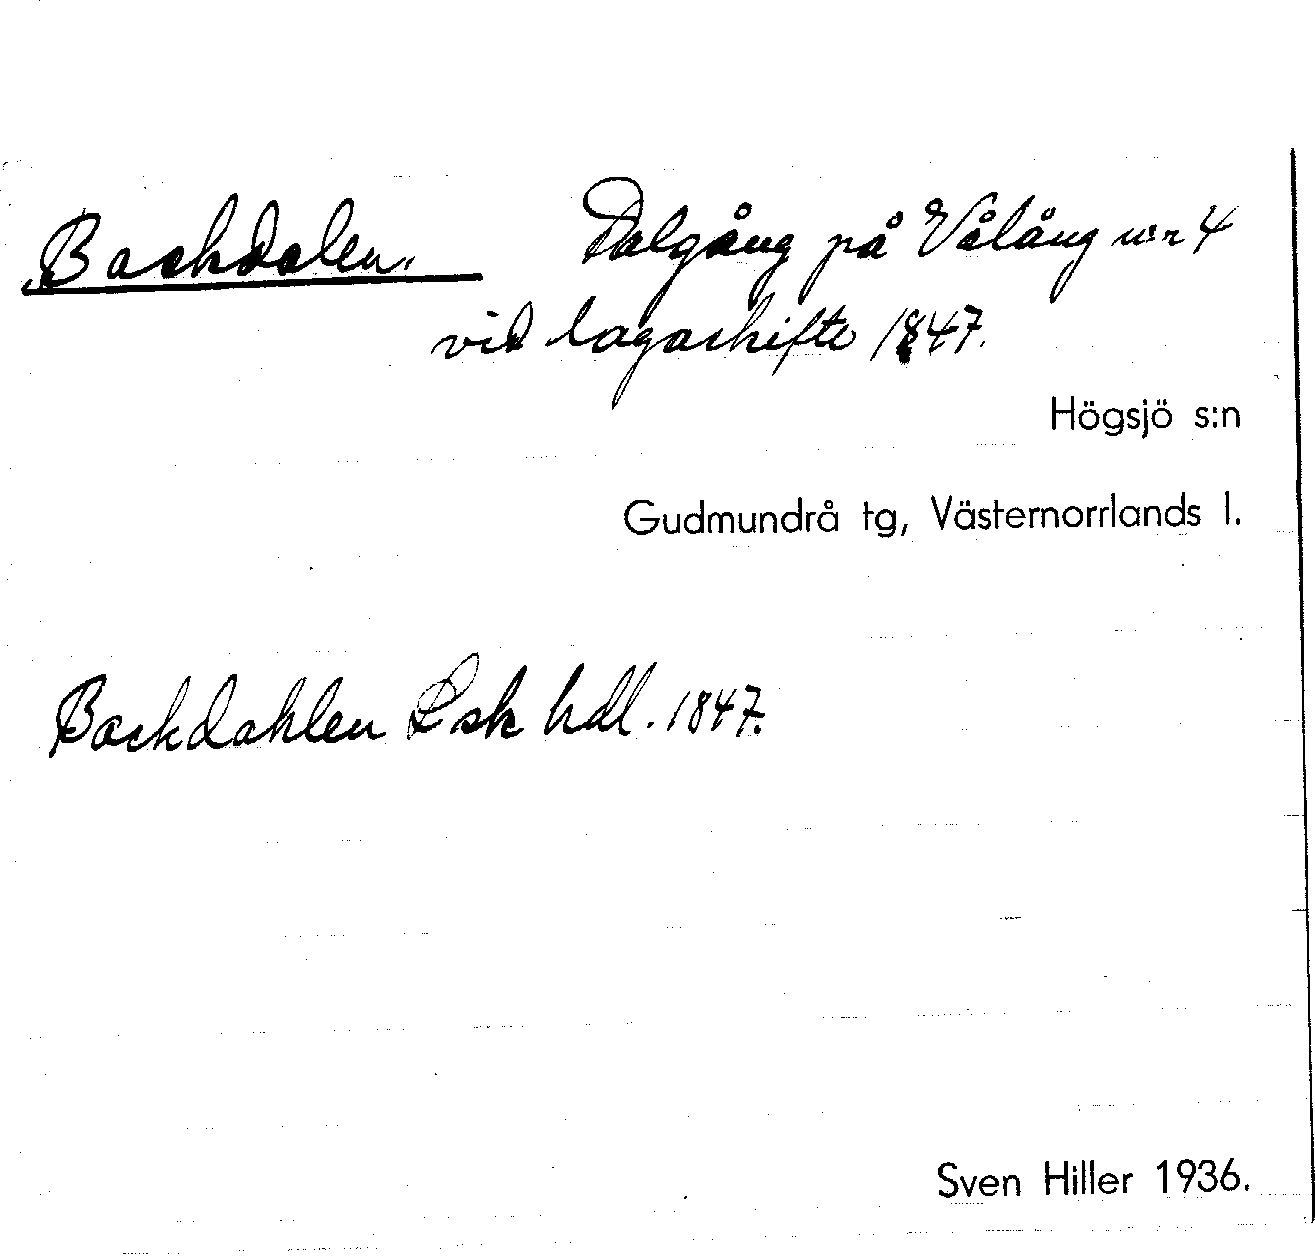 Backdalen. Dalgång på Vålång n:r 4
vid lagaskifte 1847.
Högsjö s:n
Gudmundrå tg, Västernorrlands l.
Backdahlen Lsk hdl. 1847.
Sven Hiller 1936.